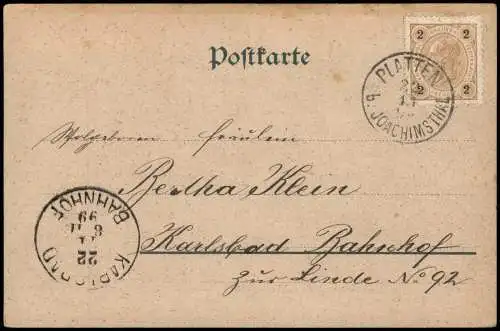 Postkarte
2 2
2 2
PLATTEN
B. JOACHIMSTHAL
Wolgeboren Fräulein
Bertha Klein
Karlsbad Bahnhof
zur Linde No 92
KARLSBAD
BAHNHOF
22
99